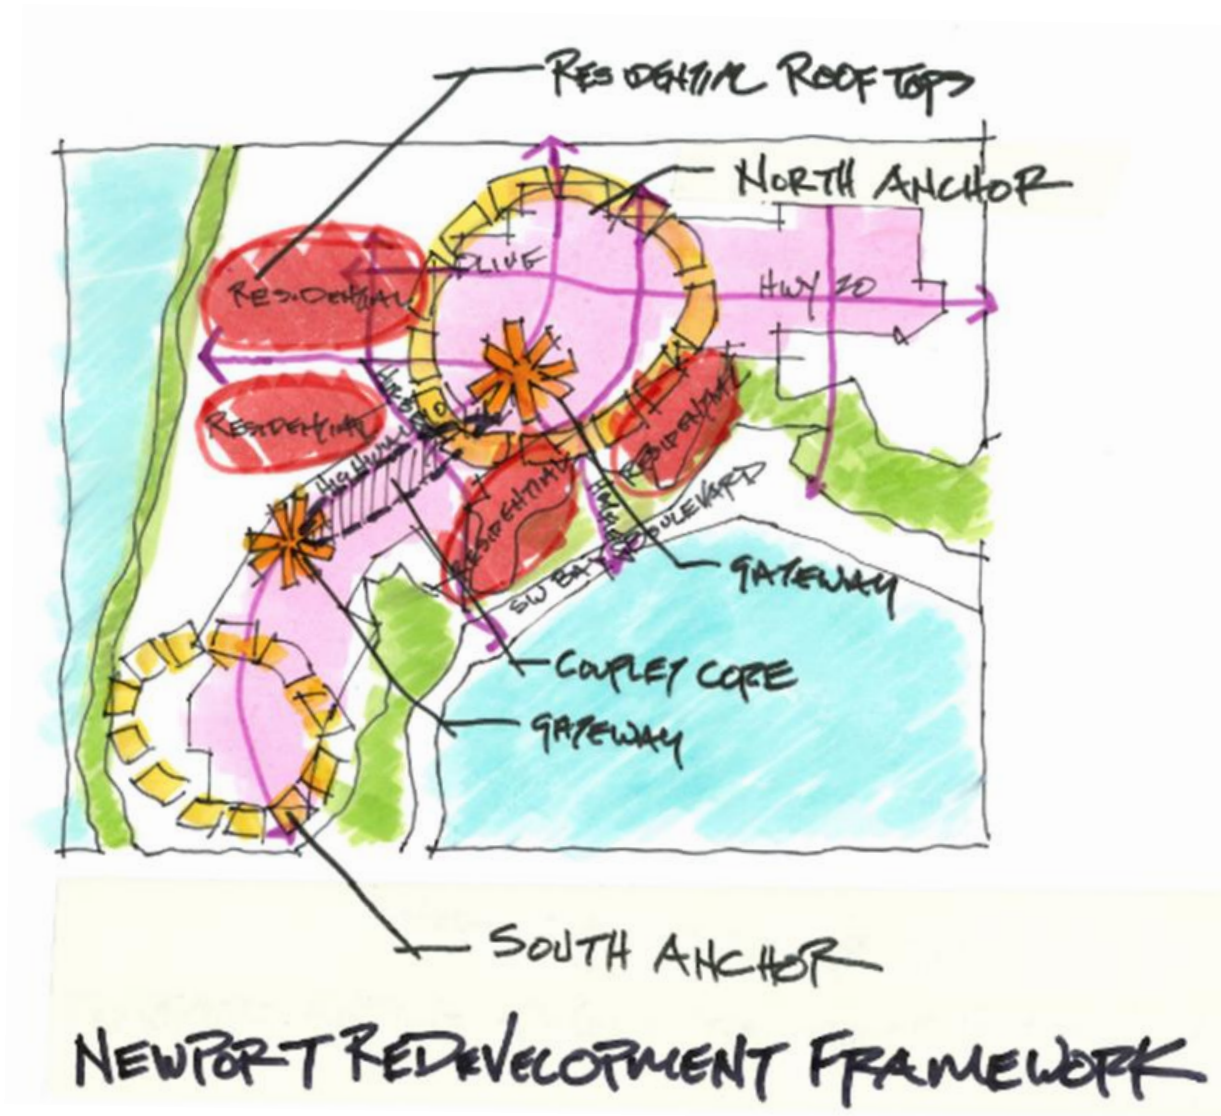 RESIDENTIAL ROOFTOPS
NORTH ANCHOR
OLIVE
HWY 20
RESIDENTIAL
RESIDENTIAL
RESIDENTIAL
RESIDENTIAL
SW BAY BOULEVARD
GATEWAY
COUPLET CORE
GATEWAY
SOUTH ANCHOR
NEWPORT REDEVELOPMENT FRAMEWORK